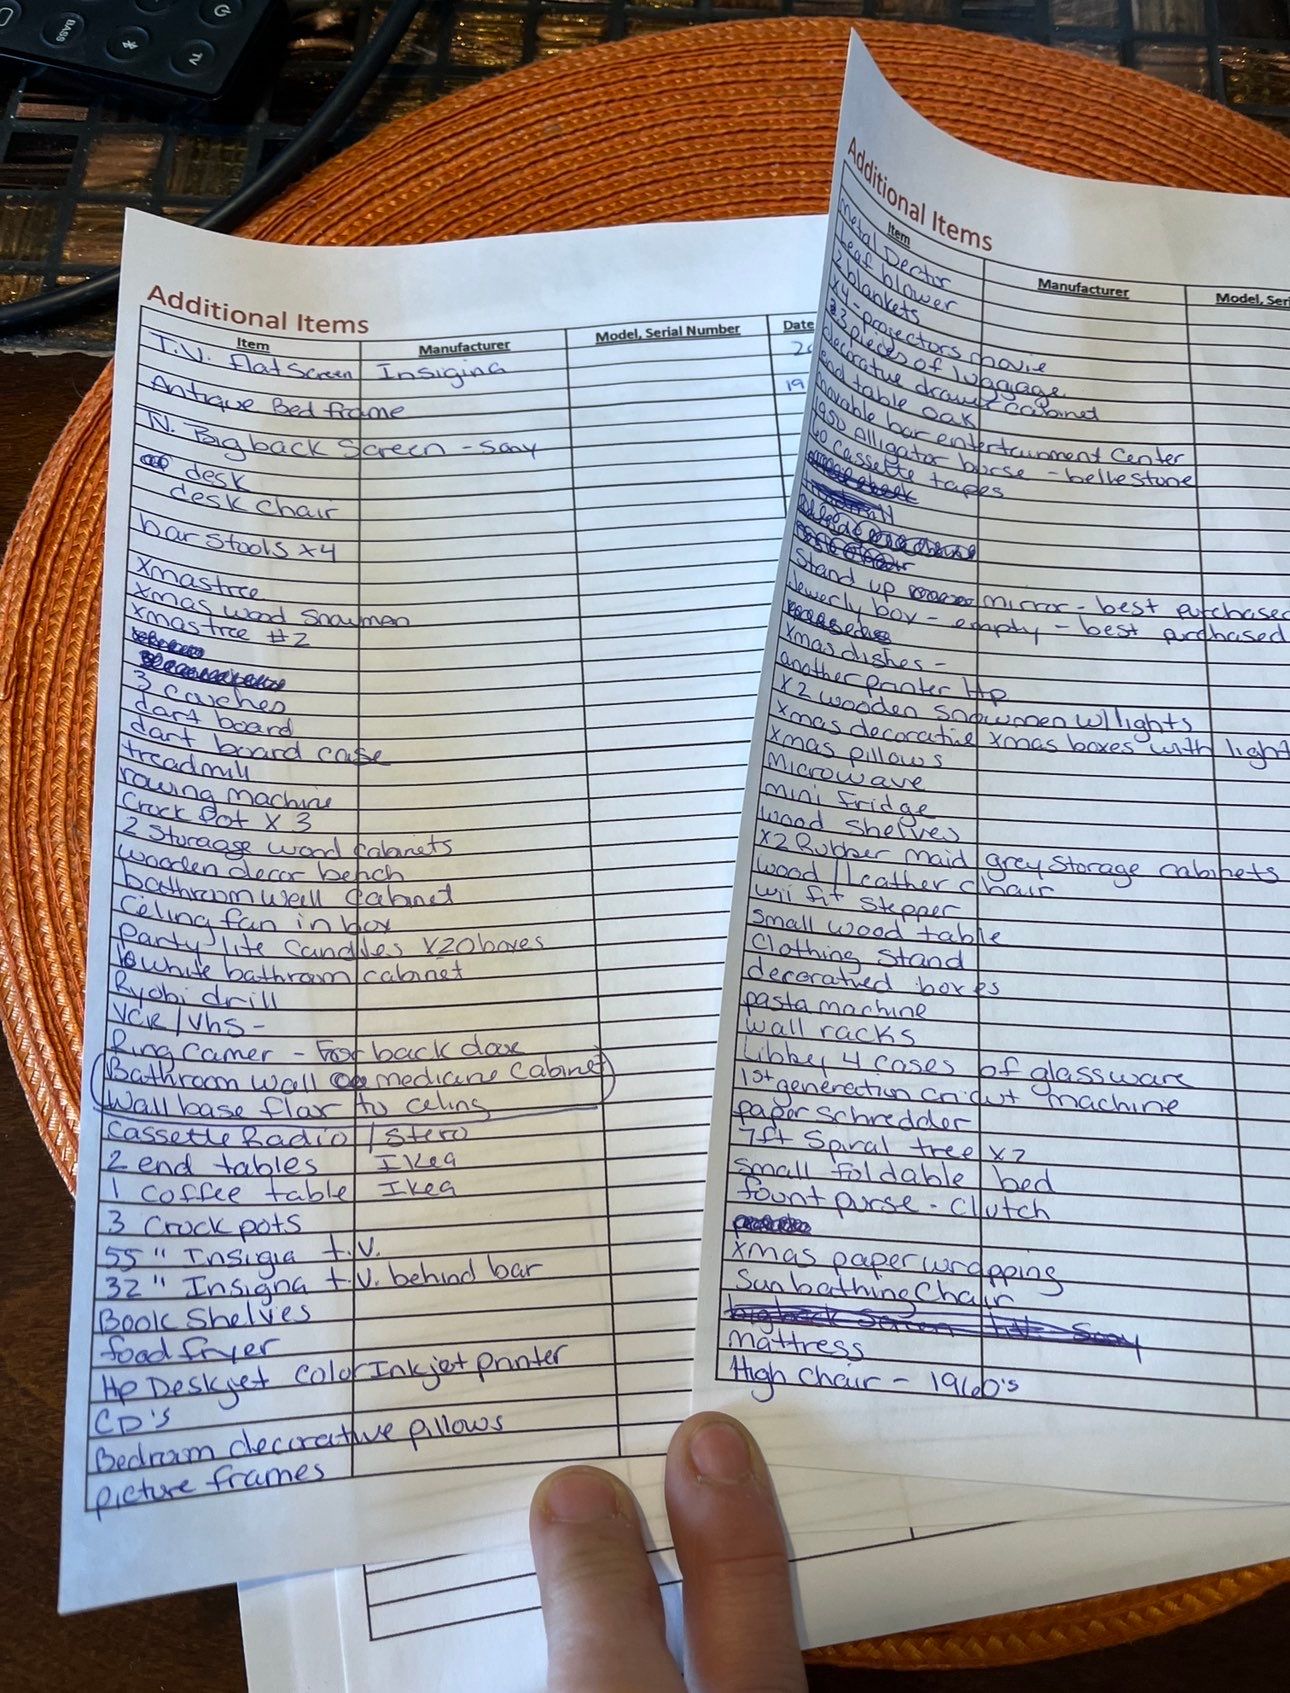 BASS
TV
Additional Items
Item Manufacturer Model, Serial Number Date
T.V. flat Screen Insigina 20
Antique Bed frame 19
N. Big back Screen - Sony
desk
desk chair
bar stools x4
xmastree
xmas wood snowmen
xmastree #2
3 couches
dart board
dart board case
treadmill
rowing machine
Crock Pot x 3
2 Storage wood cabinets
wooden decor bench
bathroom wall cabinet
Celing fan in box
Party lite Candles x20boxes
white bathroom cabinet
Ryobi drill
VCR/Vhs-
Ring Camer - For back door
Bathroom wall medicine cabinet
Wall base flar to celing
Cassette Radio / Stero
2 end tables IKea
1 coffee table Ikea
3 Crock pots
55" Insigia t.V.
32" Insigna t.V. behind bar
Book Shelves
food fryer
Hp Deskjet Color Inkjet printer
CD's
Bedroom decorative pillows
picture frames
Additional Items
Item Manufacturer Model, Seri
Metal Dector
Leaf blower
2 blankets
x4 - projectors movie
3 pieces of luggage
decorative drawer cabinet
end table oak
movable bar entertainment Center
1950 Alligator purse - bellestone
60 cassette tapes
Stand up mirror - best purchased
Jewerly box - empty - best purchased
Xmas dishes -
another printer Hp
x2 wooden snowmen w/lights
xmas decorative xmas boxes with light
xmas pillows
Microwave
mini fridge
wood shelves
x2 Rubber maid grey Storage cabinets
wood / leather chair
wii fit stepper
small wood table
Clothing Stand
decoratived boxes
pasta machine
wall racks
Libbey 4 cases of glassware
1st generation cricut machine
paper schredder
7ft Spiral tree x2
small foldable bed
fount purse - Clutch
xmas paper wrapping
Sun bathing Chair
big back Screen Sony
mattress
High chair - 1960's